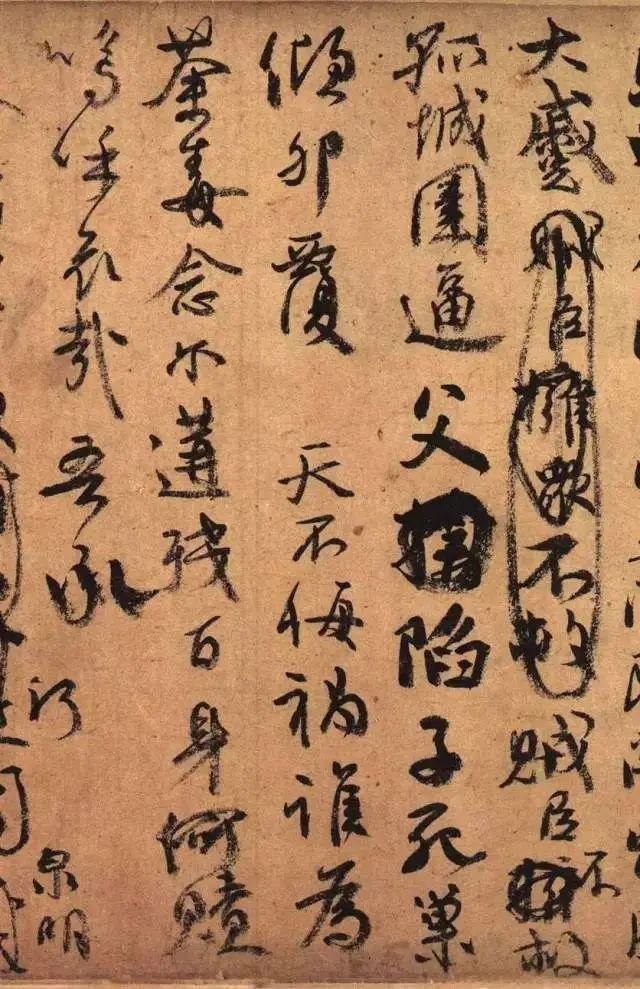 大蹙賊臣擁衆不救賊臣不救
孤城圍逼父陷子死巢
傾卵覆 天不悔禍誰為
荼毒念尔遘殘百身何贖
嗚乎哀哉吾承 泉明